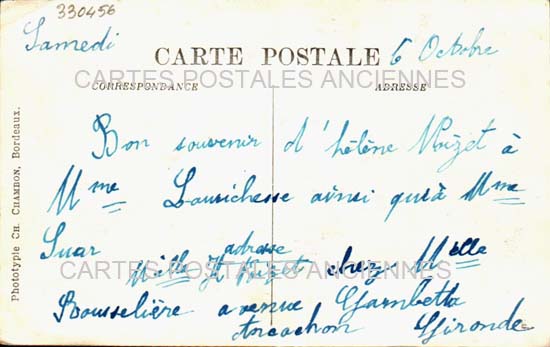 330456
Samedi 6 Octobre
CARTE POSTALE
CARTES POSTALES ANCIENNES
CORRESPONDANCE ADRESSE
Bon souvenir d'hélène Noizet à
Mme Lourichesse ainsi qu'à Mme
Suar
adresse
Mille H Noizet chez Melle
CARTES POSTALES ANCIENNES
Rousselière avenue Gambetta
Arcachon Gironde
Phototypie Ch. Chambon, Bordeaux.